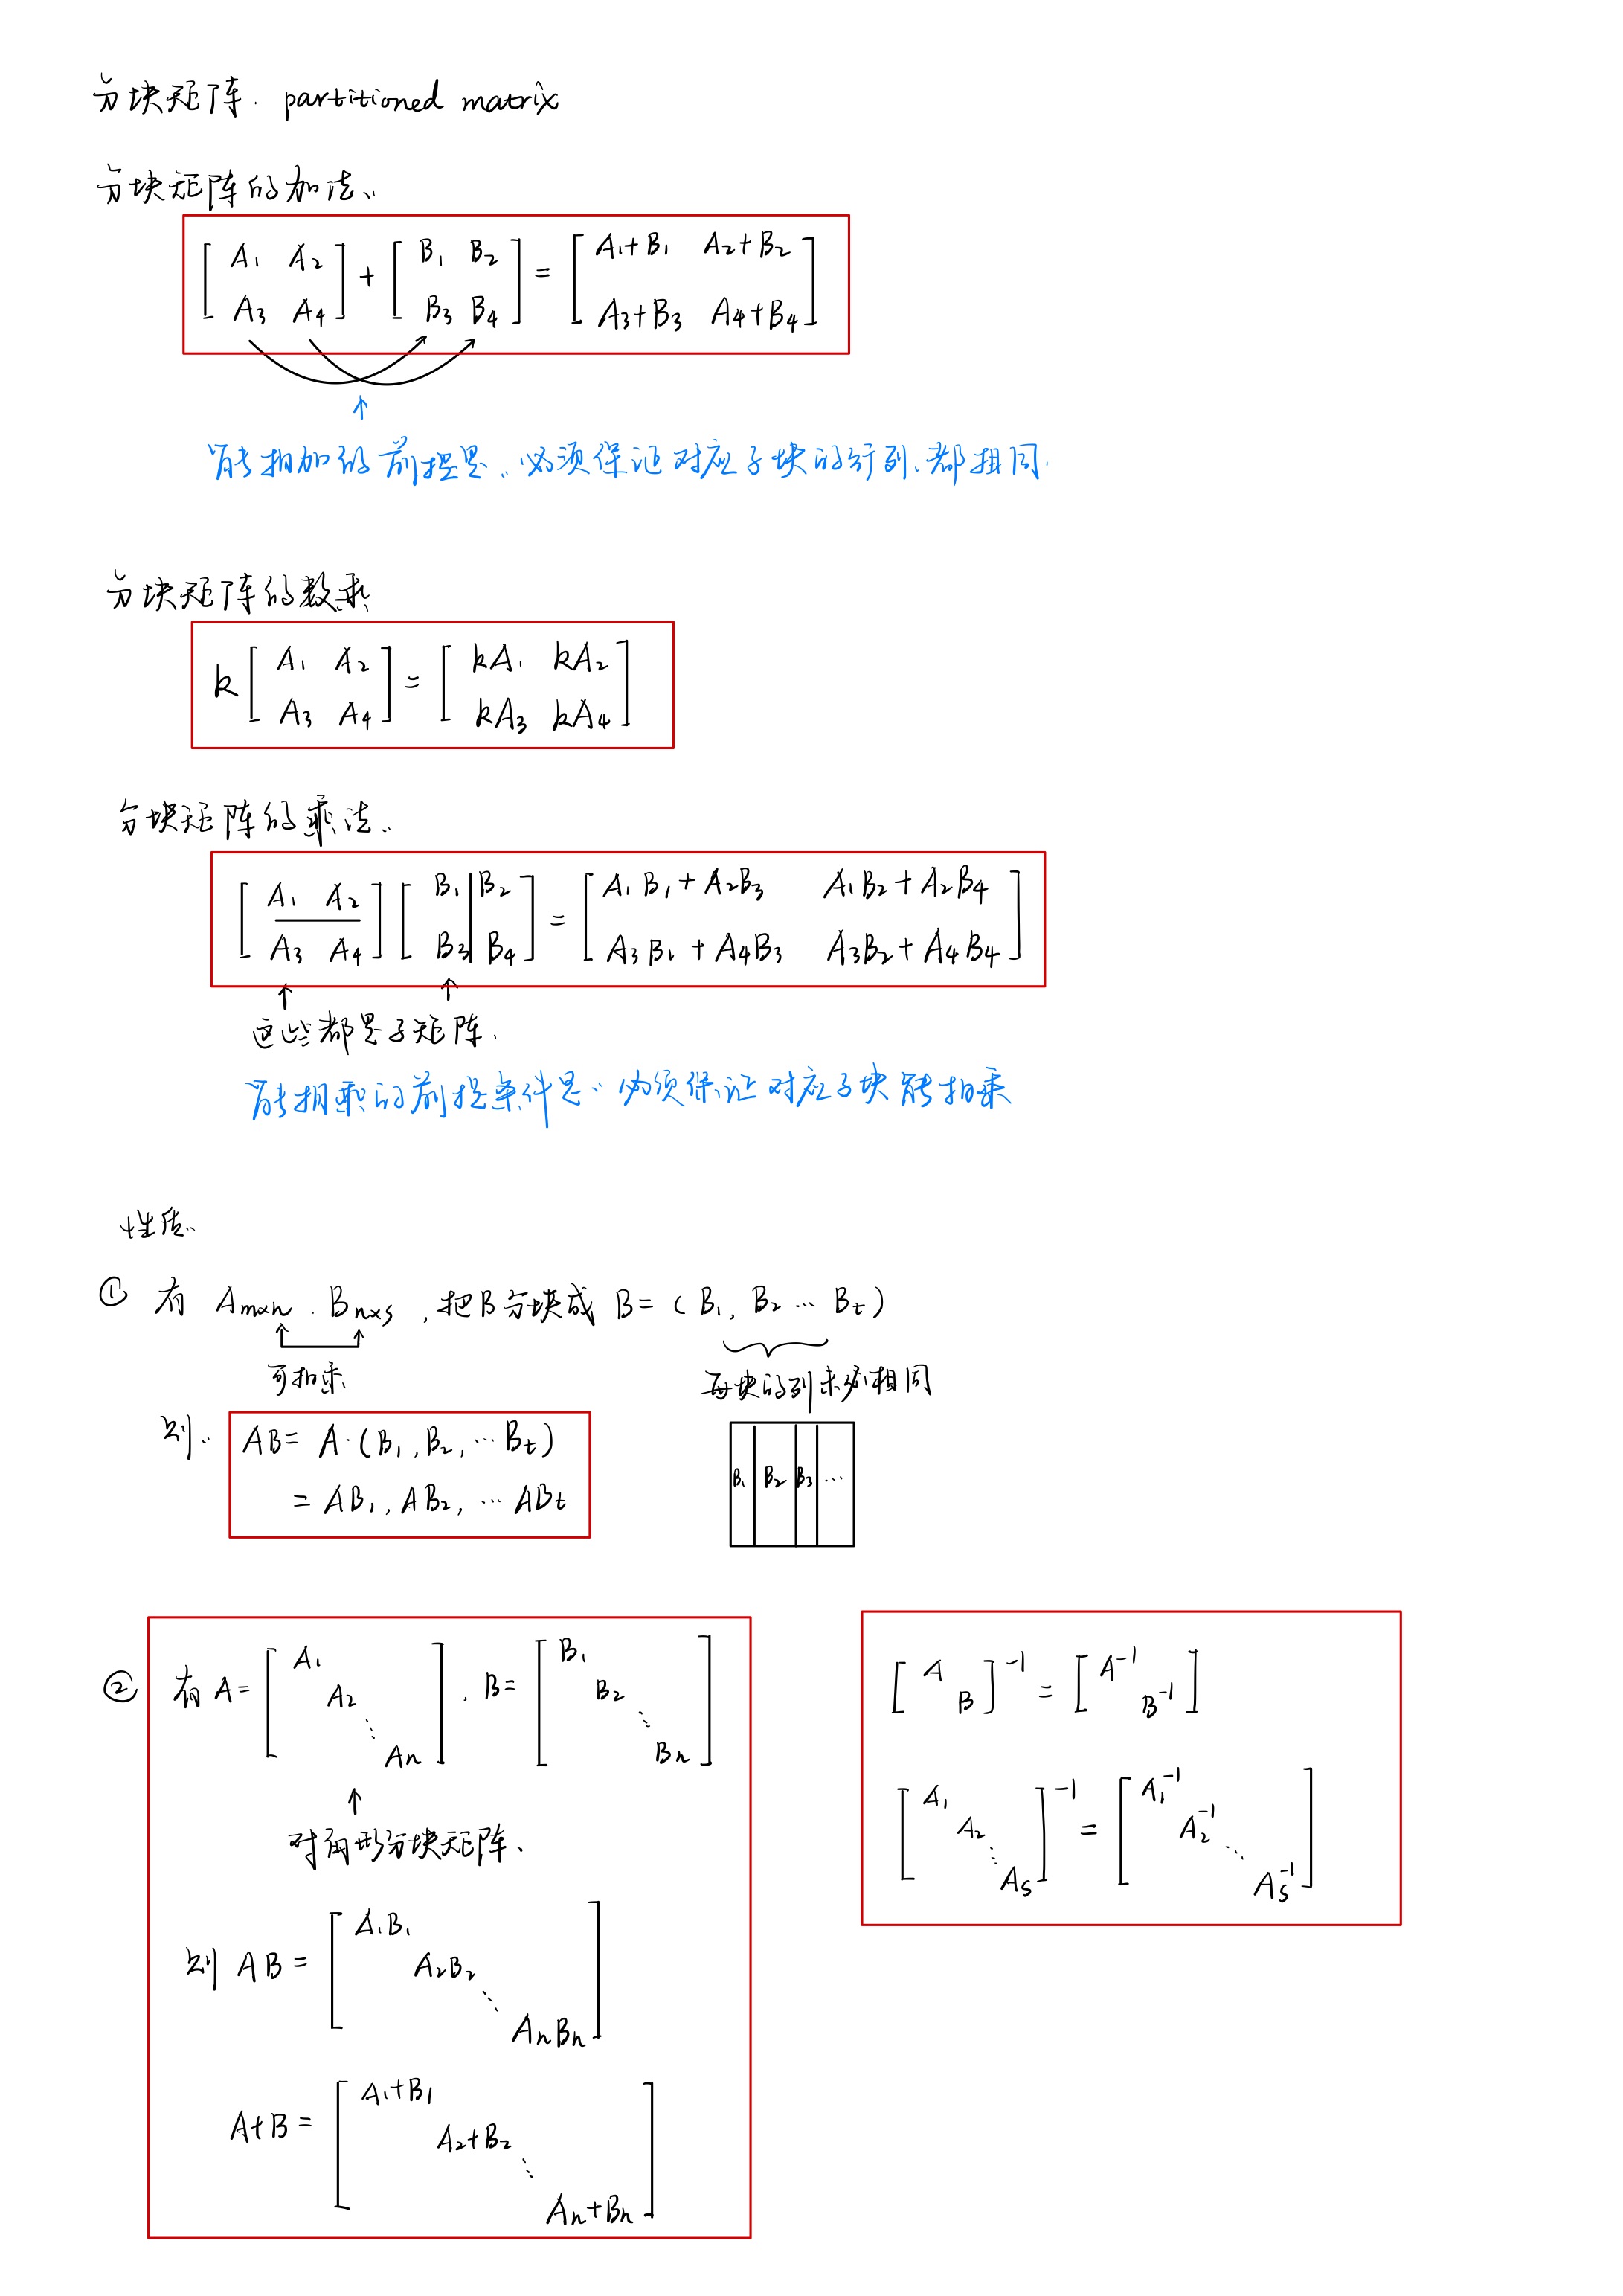 分块矩阵. partitioned matrix
分块矩阵的加法:
[ A₁ A₂ ; A₃ A₄ ] + [ B₁ B₂ ; B₃ B₄ ] = [ A₁+B₁ A₂+B₂ ; A₃+B₃ A₄+B₄ ]
↑
能相加的前提是: 必须保证对应子块的行列、都相同.
分块矩阵的数乘
k [ A₁ A₂ ; A₃ A₄ ] = [ kA₁ kA₂ ; kA₃ kA₄ ]
分块矩阵的乘法:
[ A₁ A₂ ; A₃ A₄ ] [ B₁ B₂ ; B₃ B₄ ] = [ A₁B₁+A₂B₃ A₁B₂+A₂B₄ ; A₃B₁+A₄B₃ A₃B₂+A₄B₄ ]
↑ ↑
这些都是子矩阵.
能相乘的前提条件是: 必须保证对应子块能相乘
性质:
① 有 Aₘₓₙ . Bₙₓₛ , 把B分块成 B = ( B₁, B₂ … Bₜ )
可相乘 每块的列未必相同
则: AB = A·(B₁, B₂, … Bₜ)
= AB₁, AB₂, … ABₜ
B₁ B₂ B₃ …
② 有 A = [ A₁ A₂ ⋱ Aₙ ] , B = [ B₁ B₂ ⋱ Bₙ ]
↑
对角形分块矩阵、
则 AB = [ A₁B₁ A₂B₂ ⋱ AₙBₙ ]
A+B = [ A₁+B₁ A₂+B₂ ⋱ Aₙ+Bₙ ]
[ A B ]⁻¹ = [ A⁻¹ B⁻¹ ]
[ A₁ A₂ ⋱ Aₛ ]⁻¹ = [ A₁⁻¹ A₂⁻¹ ⋱ Aₛ⁻¹ ]